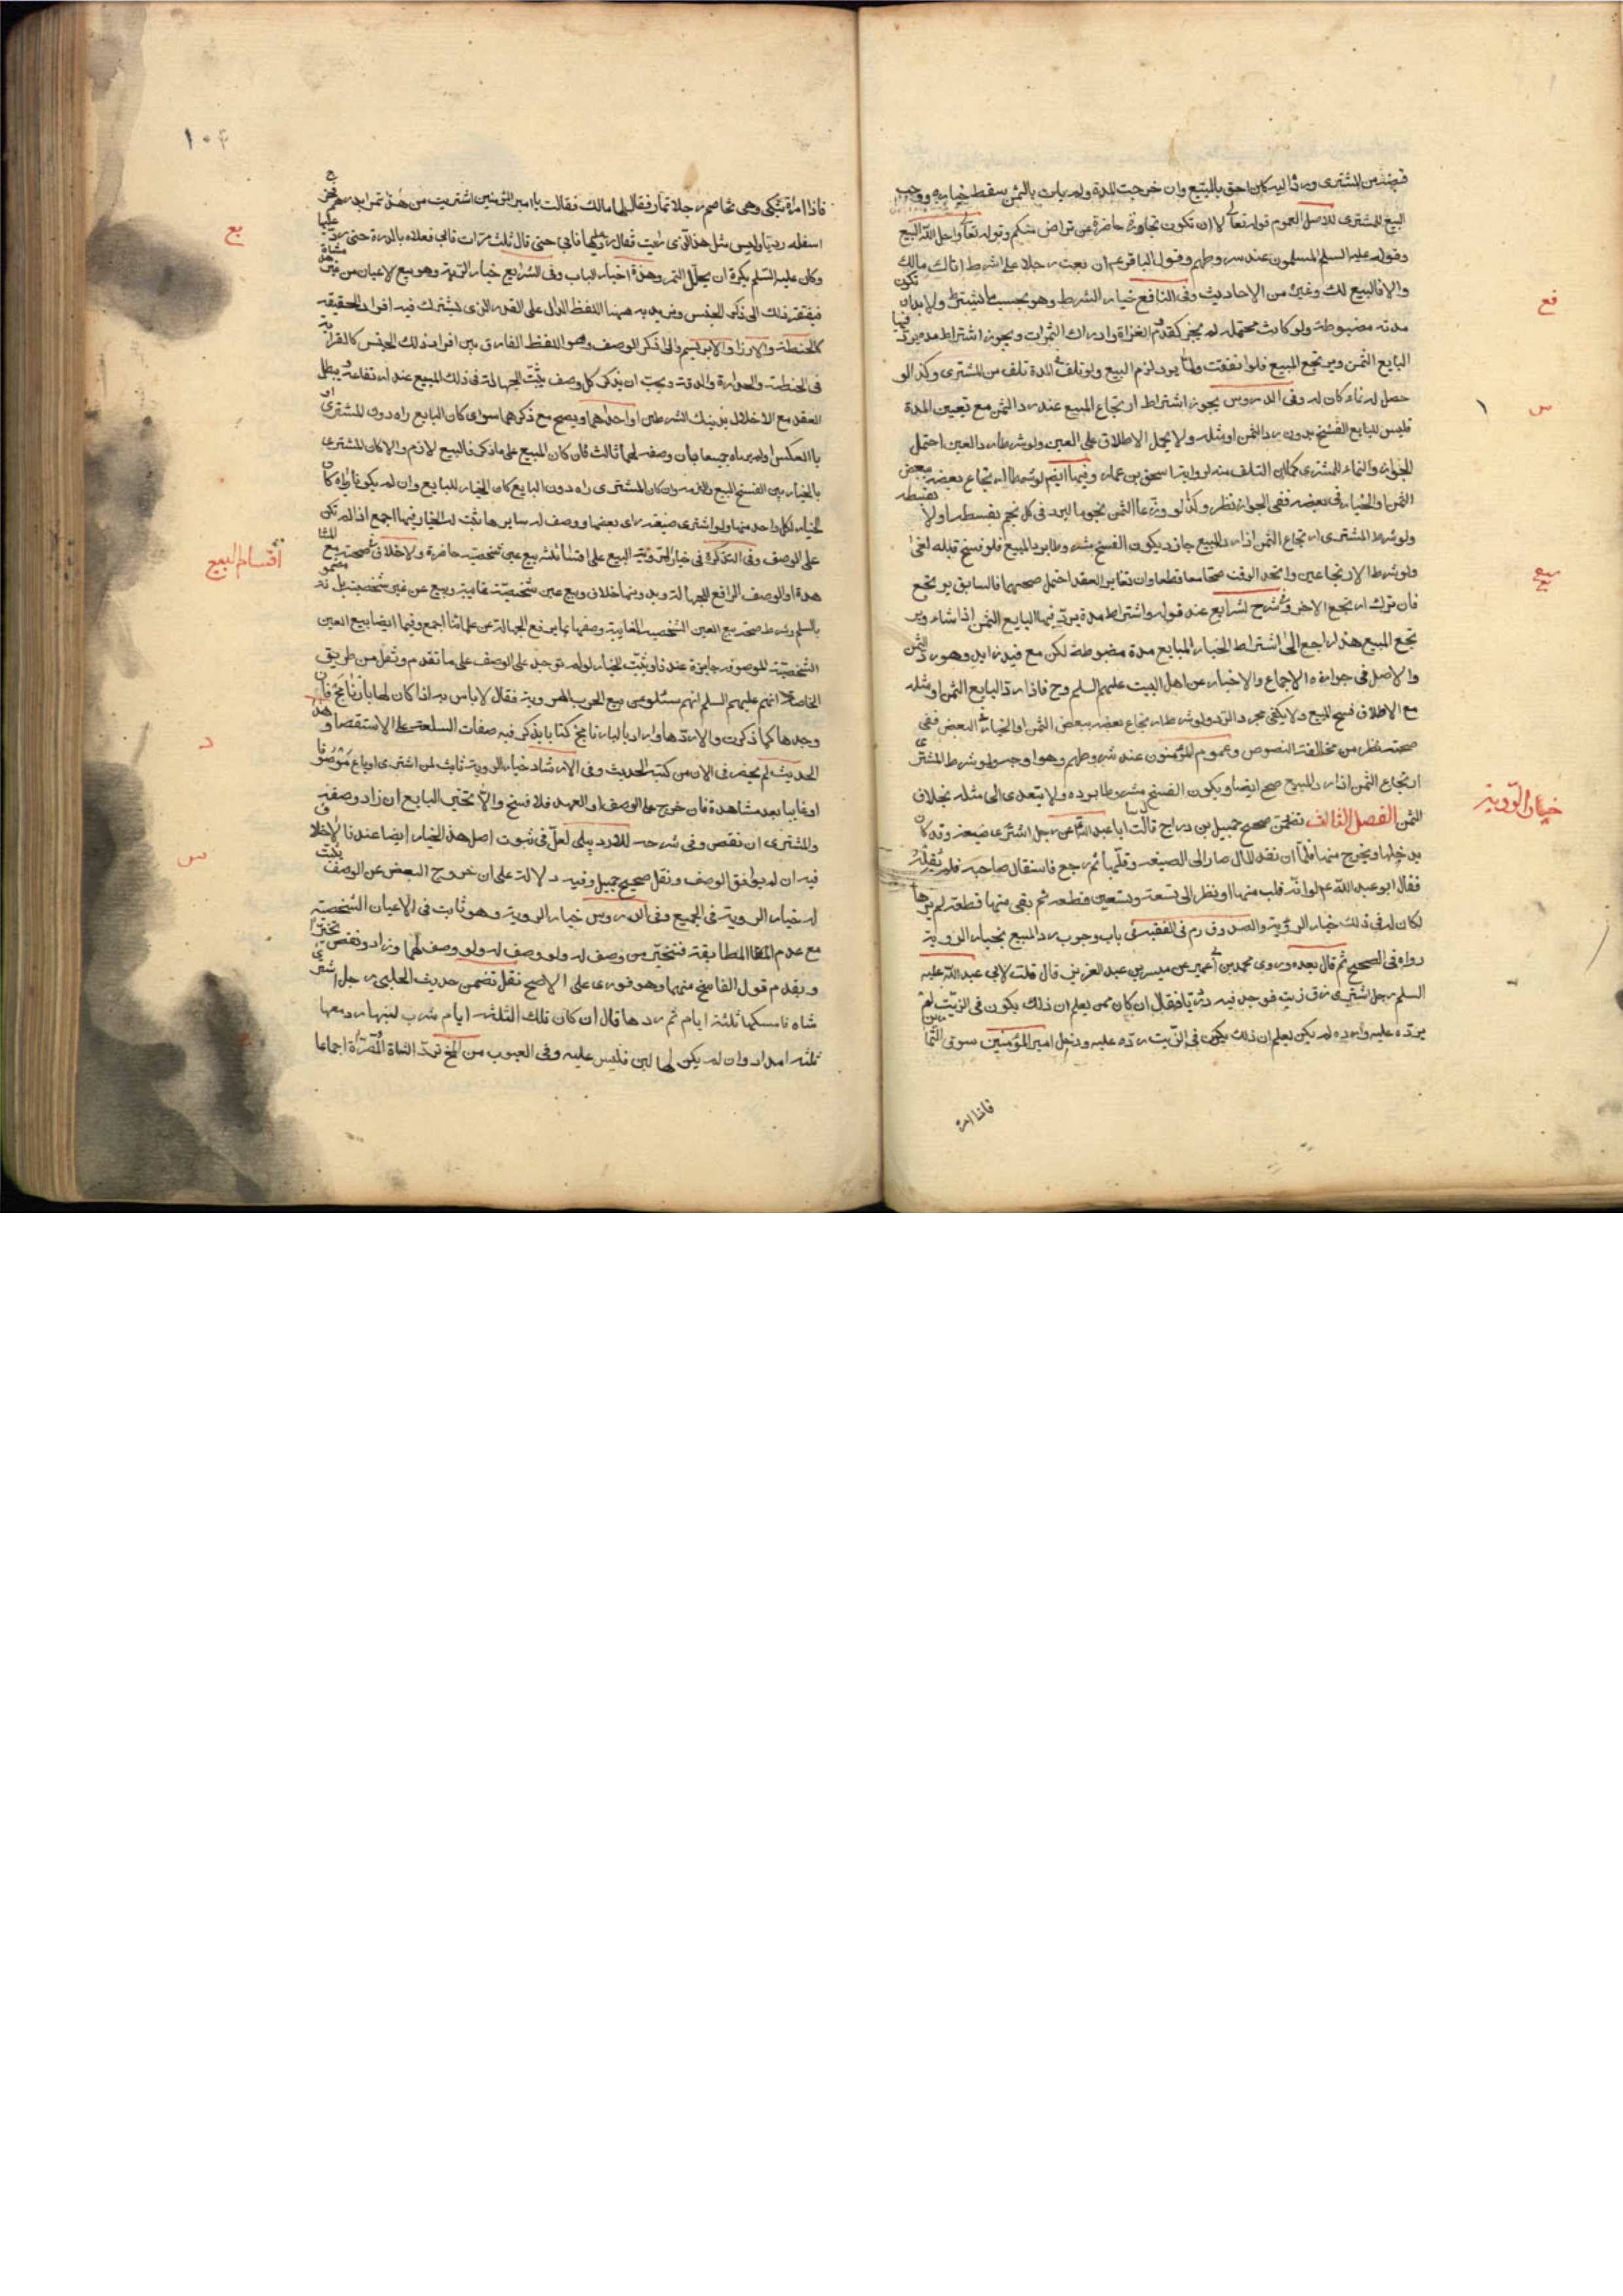 قبضه من المشتري ورده اليه كان احق بالمبيع وان خرجت المدة ولم يات بالثمن سقط خياره ووجب
البيع للمشتري للاصل العموم قوله تعالى الا ان تكون تجارة حاضرة عن تراض منكم وقوله تعالى واحل الله البيع
وقوله عليه السلم المسلمون عند شروطهم وقول الباقر عم ان بعت رجلا على شرط اتاك مالك
والا فالبيع لك وغيره من الاحاديث وفي النافع خيار الشرط وهو بحسب ما يشترط ولا بد ان تكون
مدته مضبوطة ولو كانت محتمله لم يجز كقدوم الغزاة وادراك الثمرات ويجوز اشتراط مدة يرد فيها
البايع الثمن ويرتجع المبيع فلو انقضت ولما يرد لزم البيع ولو تلف في المدة تلف من المشتري وكذا لو
حصل له نماء كان له وفي الدروس يجوز اشتراط ارتجاع المبيع عند رد الثمن مع تعيين المدة
فليس للبايع الفسخ بدون رد الثمن او مثله ولا يحمل الاطلاق على العين ولو شرط رد العين احتمل
الجواز والنماء للمشتري كما ان التلف منه لرواية اسحق بن عمار وفيها ايضا لو شرط ارتجاع بعضه ببعض
الثمن او الخيار في بعضه ففي الجواز نظر وكذا لو وزعا الثمن نجوما ليرد في كل نجم بقسطه اولا بقسطه
ولو شرط المشتري ارتجاع الثمن اذا رد المبيع جاز ويكون الفسخ مشروطا برد المبيع فلو فسخ قبله لغى
ولو شرطا الارتجاعين واتحد الوقت صحا معا قطعا وان تغاير العقد احتمل صحتهما فالسابق يرتجع
فان ترك ارتجع الاخر وفي شرح لشرايع عند قوله واشتراط مدة يرد فيها البايع الثمن اذا شاء وير
تجع المبيع هذا راجع الى اشتراط الخيار للبايع مدة مضبوطة لكن مع قيد زايد وهو رد الثمن
والاصل في جوازه الاجماع والاخبار عن اهل البيت عليهم السلم وح فاذا رد البايع الثمن او مثله
مع الاطلاق فسخ البيع ولا يكفي مجرد الرد ولو شرط ارتجاع بعضه ببعض الثمن او الخيار في البعض ففي
صحته نظر من مخالفة النصوص وعموم المؤمنون عند شروطهم وهو اوجه ولو شرط المشتري
ارتجاع الثمن اذا رد المبيع صح ايضا ويكون الفسخ مشروطا برده ولا يتعدى الى مثله بخلاف
الثمن الفصل الثالث تضمن صحيح جميل بن دراج قال سالت ابا عبد الله عن رجل اشترى ضيعة وقد كان
يدخلها ويخرج منها فلما ان نقد المال صار الى الضيعة وقلبها ثم رجع فاستقال صاحبه فلم يقله
فقال ابو عبد الله عم لو انه قلب منها او نظر الى تسعة وتسعين قطعه ثم بقي منها قطعة لم يرها
لكان له في ذلك خيار الرؤية والصدوق رم في الفقيه في باب وجوب رد المبيع بخيار الرؤية
رواه في الصحيح ثم قال بعده وروى محمد بن ابي عمير عن ميسر بن عبد العزيز قال قلت لابي عبد الله عليه
السلم رجل اشترى زق زيت فوجد فيه درديا فقال ان كان ممن يعلم ان ذلك يكون في الزيت لم
يرده عليه وان لم يكن يعلم ان ذلك يكون في الزيت رده عليه ودخل امير المؤمنين سوق التمارين
فاذا امرة
فع
س ١
يع
خيار الرؤية
١٠٤
فاذا امراة تبكي وهي تخاصم رجلا تمارا فقال لها مالك فقالت يا امير المؤمنين اشتريت من هذا تمرا بدرهم فخرج
اسفله رديا وليس مثل هذا الذي رايت فقال رد عليها فابى حتى قال ثلث مرات فابى فعلاه بالدرة حتى رد عليها
وكان عليه السلم يكره ان يجلل التمر وهذه اخبار الباب وفي الشرايع خيار الرؤية وهو بيع الاعيان من غير مشاهدة
فيفتقر ذلك الى ذكر الجنس ونريد به ههنا اللفظ الدال على القدر الذي يشترك فيه افراد الحقيقه
كالحنطة والارز او الابريسم والى ذكر الوصف وهو اللفظ الفارق بين افراد ذلك الجنس كالصرابة
في الحنطة والحدارة والدقة ويجب ان يذكر كل وصف يثبت الجهالة في ذلك المبيع عند ارتفاعه ويبطل
العقد مع الاخلال بذينك الشرطين او احدهما ويصح مع ذكرهما سواء كان البايع راه دون المشتري او
بالعكس او لم يرياه جميعا بان وصفه لهما ثالث فان كان المبيع على ما ذكر فالبيع لازم والا كان المشتري
بالخيار بين الفسخ البيع والتزامه وان كان المشتري راه دون البايع كان الخيار للبايع وان لم يكونا راياه كان
الخيار لكل واحد منهما ولو اشترى ضيعة راى بعضها ووصف له سايرها ثبت له الخيار فيها اجمع اذا لم تكن
على الوصف وفي التذكرة في خيار الرؤية البيع على اقسام ثلثه بيع عين شخصية حاضرة ولا خلاف في صحته مع المشا
هدة او الوصف الرافع للجهالة وبدونهما خلاف وبيع عين شخصية غايبة وبيع عين غير شخصية بل مضمو
بالسلم وشرط صحة بيع العين الشخصيه الغايبة وصفها بما يرفع الجهالة عن علمائنا اجمع وفيها ايضا بيع العين
الشخصية الموصوفه جايزة عندنا ويثبت الخيار لو لم توجد على الوصف على ما تقدم ونقل من طريق
الخاصة انهم عليهم السلم انهم سئلوا عن بيع الجرب الهروية فقال لا باس به اذا كان لها بارنامج فان
وجدها كما ذكرت والا ردها واراد بالبارنامج كتابا يذكر فيه صفات السلعة على الاستقصاء وهذا
الحديث لم يحضرني الان من كتبه الحديث وفي الارشاد خيار الرؤية ثابت لمن اشترى او باع موصوفا
او غايبا بعد مشاهدة فان خرج على الوصف او العهد فلا فسخ والا تخير البايع ان زاد وصفه
والمشتري ان نقص وفي شرحه للاردبيلي لعل في ثبوت اصل هذا الخيار ايضا عندنا لا خلاف
فيه ان لم يوافق الوصف ونقل صحيح جميل وفيه دلالة على ان خروج البعض عن الوصف يثبت
له خيار الروية في الجميع وفي الدروس خيار الروية وهو ثابت في الاعيان الشخصيه
مع عدم المطابقة فتخير من وصف له ولو وصف لهما وزاد ونقص تخيرا
ويقدم قول الفاسخ منهما وهو فوري على الاصح نقل تضمن حديث الحلبي رجل اشترى
شاه فامسكها ثلثة ايام ثم ردها قال ان كان تلك الثلثه ايام شرب لبنها رد معها
ثلثه امداد وان لم يكن لها لبن فليس عليه وفي العيوب من الخ ترد الشاة المصراة اجماعا
يع
اقسام البيع
د
س